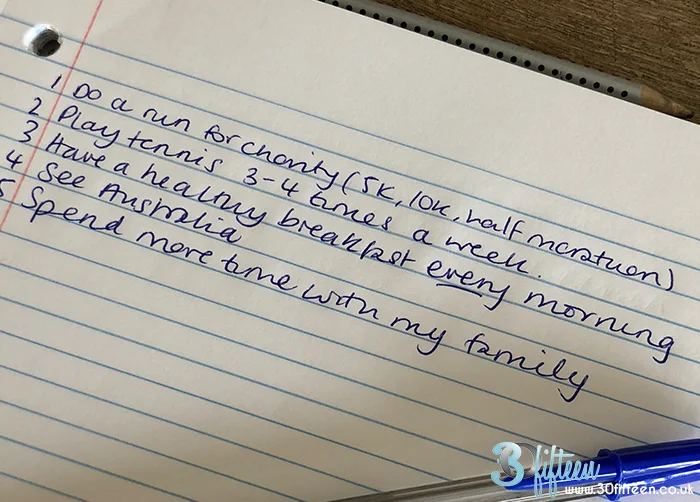 1 Do a run for charity (5K, 10K, half maratuon)
2 Play tennis 3-4 times a week.
3 Have a healthy breakfast every morning
4 See Australia
5 Spend more time with my family
30 fifteen
www.30fifteen.co.uk